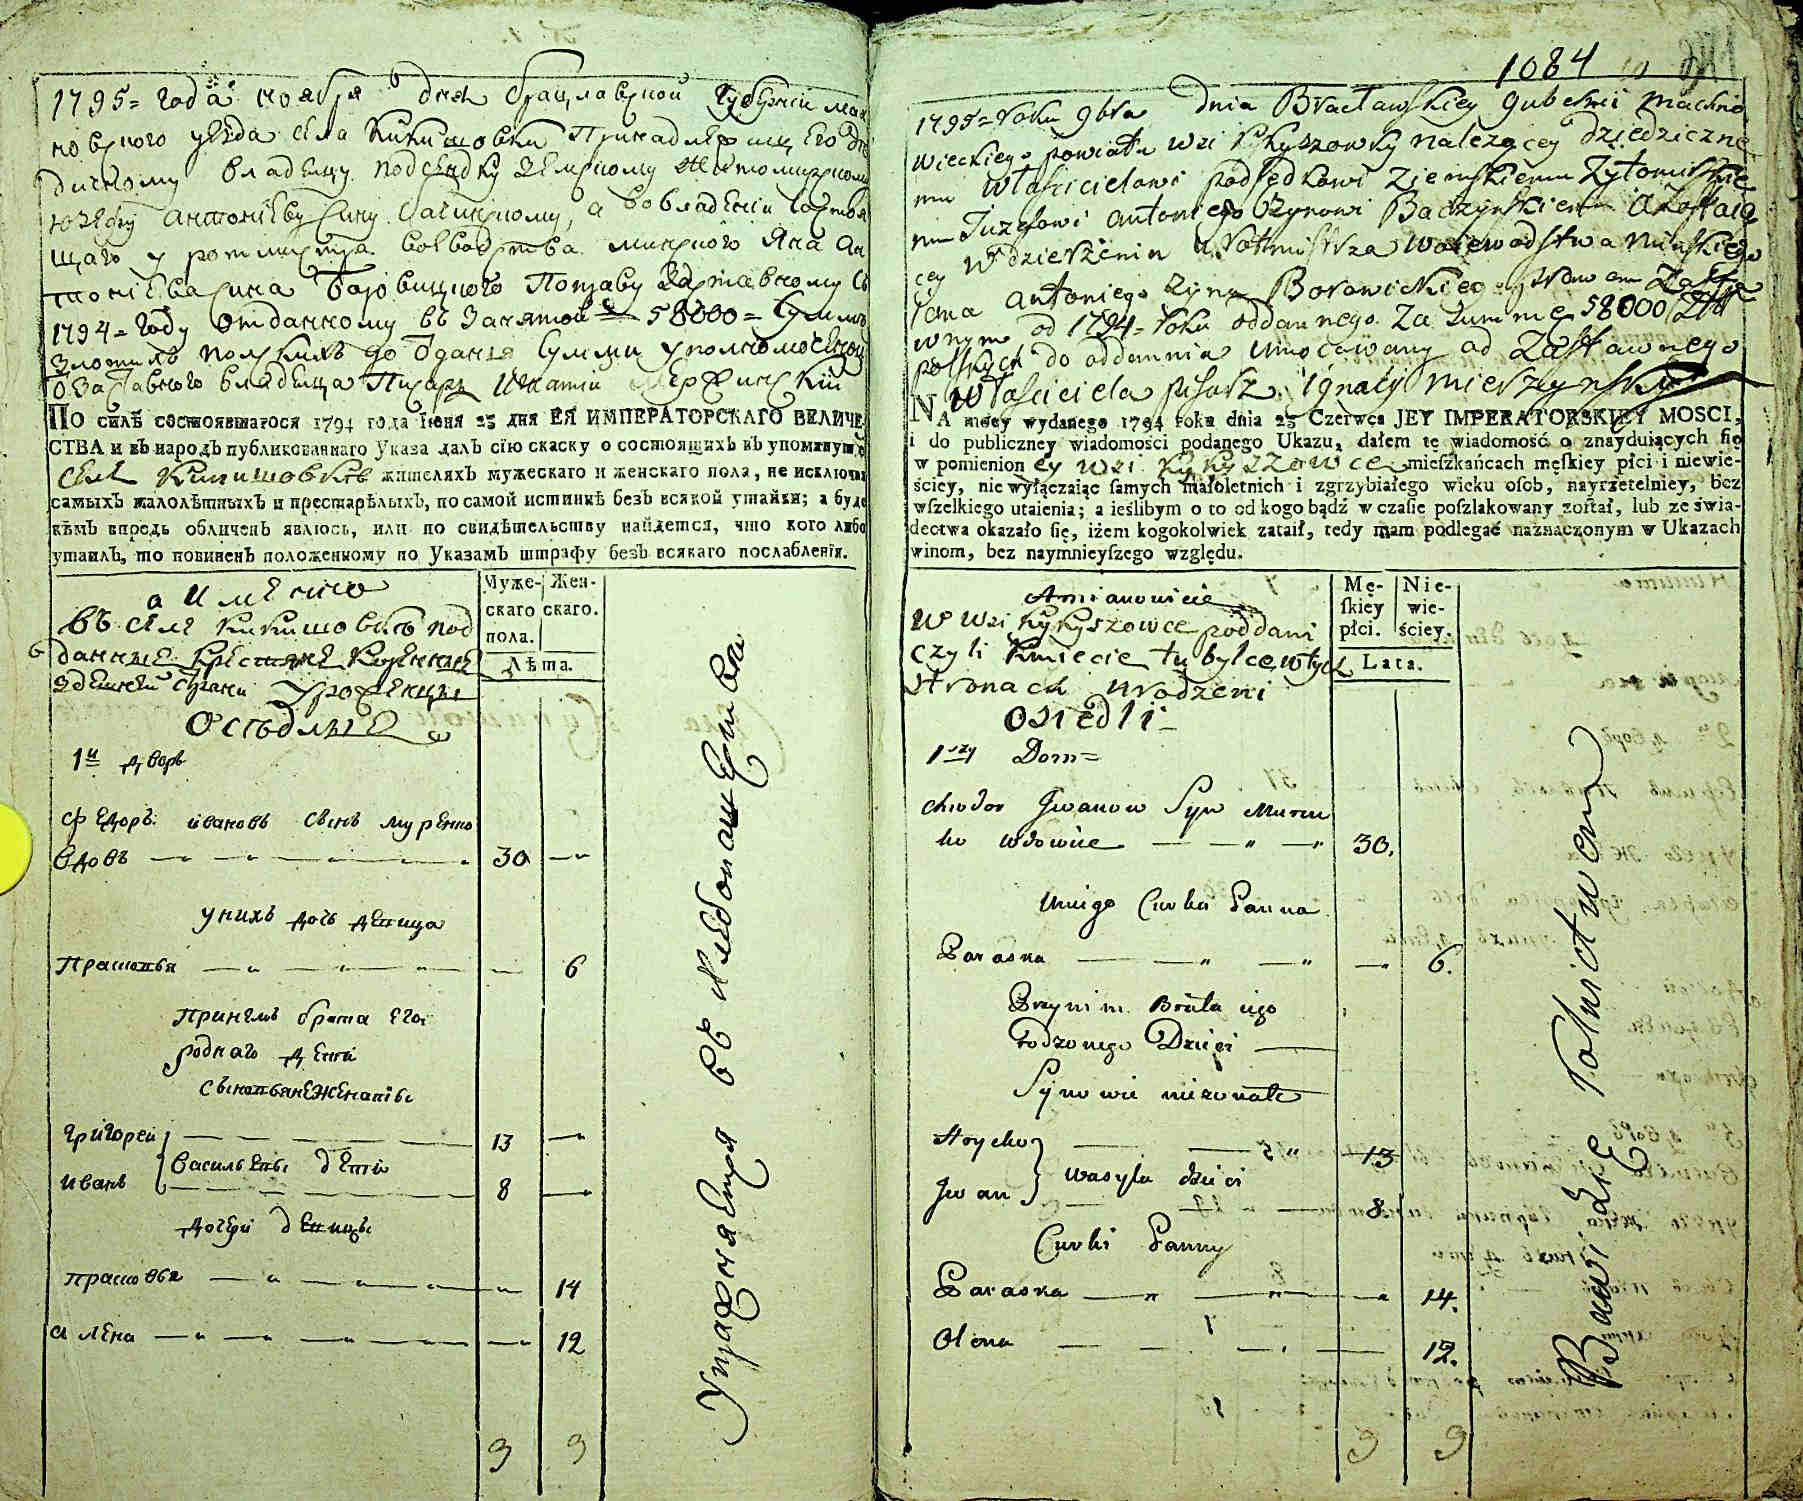 1795= года ноября 6 дня брацлавской Губернїи мах
новского уезда села Кикишовки Принадлежащ Его дѣ
дичному владелцу подсендку Земскому Житомирскому
юзефу антонїеву сину бачинскому, а во владенїи состоя
щаго у ротмистра воеводства минского Яна Ан
тонїева сина Боровицкого По праву заставному съ
1794= году отданному въ занятой 58000= Сумме
злотихъ полскихъ до отдания Суммы уполномоченой
от заставного владелца Писарь Игнатий Мержинский
ПО силѣ состоявшагося 1794 года Іюня 23 дня ЕЯ ИМПЕРАТОРСКАГО ВЕЛИЧЕ-
СТВА и въ народъ публикованнаго Указа далъ сїю скаску о состоящихъ въ упомянутом
селе Кикишовке жителяхъ мужескаго и женскаго пола, не исключая
самыхъ малолѣтныхъ и престарѣлыхъ, по самой истиннѣ безъ всякой утайки; а буде
кѣмъ впредь обличенъ явлюсь, или по свидѣтельству найдется, что кого либо
утаилъ, то повиненъ положенному по Указамъ штрафу безъ всякаго послабленїя.
а именно
въ селе кикишовкѣ под
данные Крестяне Коренние
здешней страни Урожденцы
Оседлые
Муже-
скаго
пола.
Жен-
скаго.
Лѣта.
1й дворъ
Федоръ ивановъ сынъ муренко
вдовъ 30
у нихъ дочь девица
Прасковья 6
Принемъ брата его
роднаго дети
сыновья неженатые
григорей 13
Васильевы дети
иванъ 8
дочери девицы
прасковья 14
алена 12
3 3
1084
1795= roku 9bra dnia Bracławskiey guberni Machno
wieckiego powiatu wsi Kykyszowky nalezącey dziedziczne
mu włascicielowi podsędkowi Ziemskiemu Zytomirskie
mu Juzefowi antoniego synowi Baczynskiemu a zostaią
cey w dzierżeniu u rotmistrza wojewodstwa minskiego
Jana antoniego syna Borowickiego prawem Zasta
wnym od 1794= roku oddannego za summę 58000 Złł
polskych do oddannia umocowany od Zastawnego
własciciela pisarz Ignacy mierzynsky
NA mocy wydanego 1794 roku dnia 23 Czerwca JEY IMPERATORSKIEY MOSCI,
i do publiczney wiadomości podanego Ukazu, dałem tę wiadomość o znayduiących się
w pomienion ey wsi Kykyszowce mieszkańcach męskiey płci i niewie-
ściey, nie wyłączaiąc samych małoletnich i zgrzybiałego wieku osob, nayrzetelniey, bez
wszelkiego utaienia; a ieślibym o to od kogo bądź w czasie poszlakowany został, lub ze świa-
dectwa okazało się, iżem kogokolwiek zataił, tedy mam podlegać naznaczonym w Ukazach
winom, bez naymnieyszego względu.
Amianowicie
W wsi Kykyszowce poddani
czyli kmiecie tu bylce w tych
stronach urodzeni
osiedli
Mę-
skiey
płci.
Nie-
wie-
ściey.
Lata.
1szy Dom=
Chwedor Jwanow Syn Muren
ko wdowiec 30.
U niego Curka Panna
Paraska 6.
Przy nim Brata iego
rodzonego Dzieci
Synowie niezonate
Hryćko 13
Wasyla dzieci
Jwan 8.
Curki Panny
Paraska 14.
Olena 12.
3 3